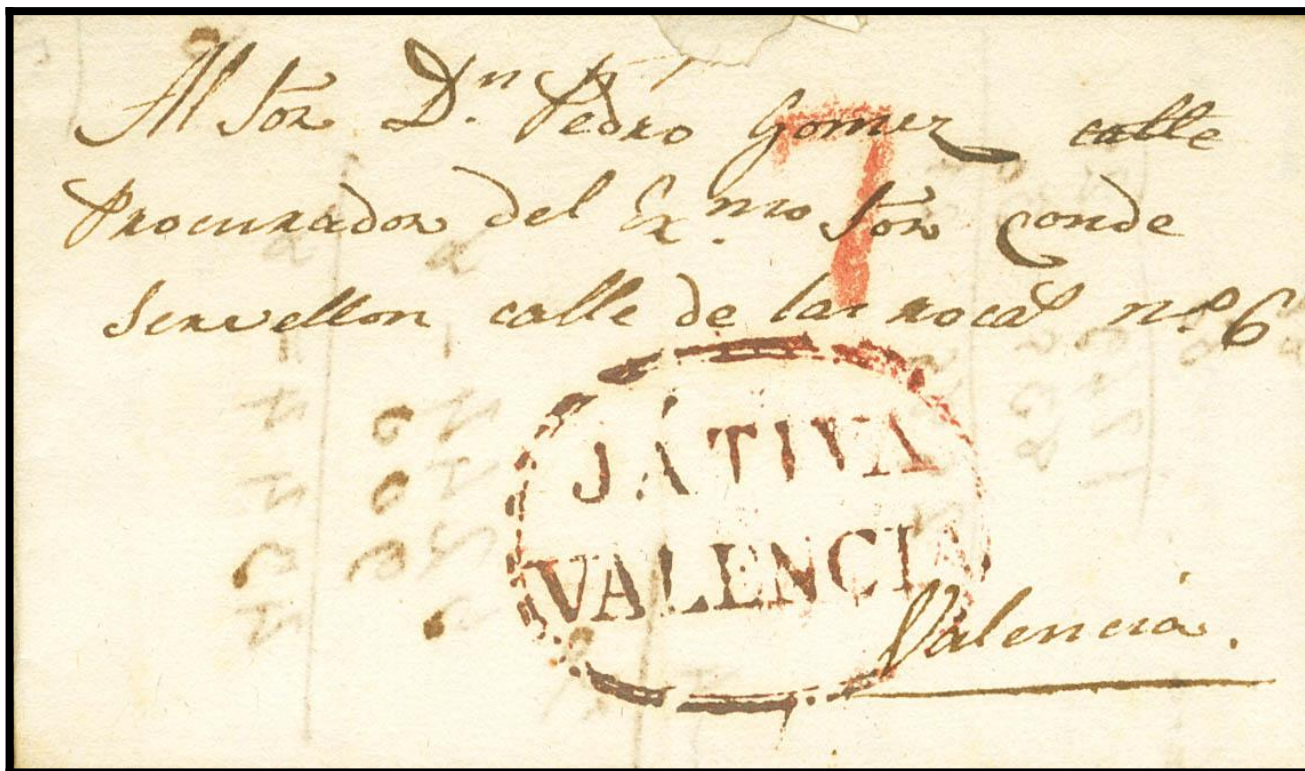 Al Sor Dn. Pedro Gomez calle
Procurador del Ex.mo Sor Conde
Servellon calle de las rocas no. 6
7
JÁTIVA
VALENCIA
Valencia.